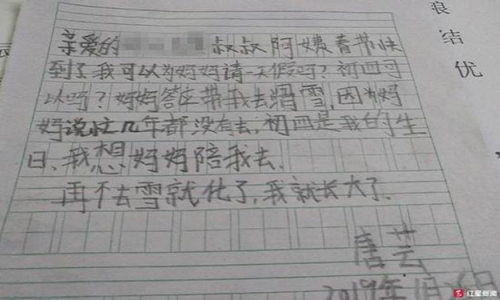 亲爱的 叔叔阿姨春节快
到了我可以为妈妈请一天假吗?初四可
以吗?妈妈答应带我去滑雪,因为妈
妈说忙几年都没有去,初四是我的生
日,我想妈妈陪我去.
再不去雪就化了,我就长大了.
唐芸
2019年1月
结
优
红星新闻